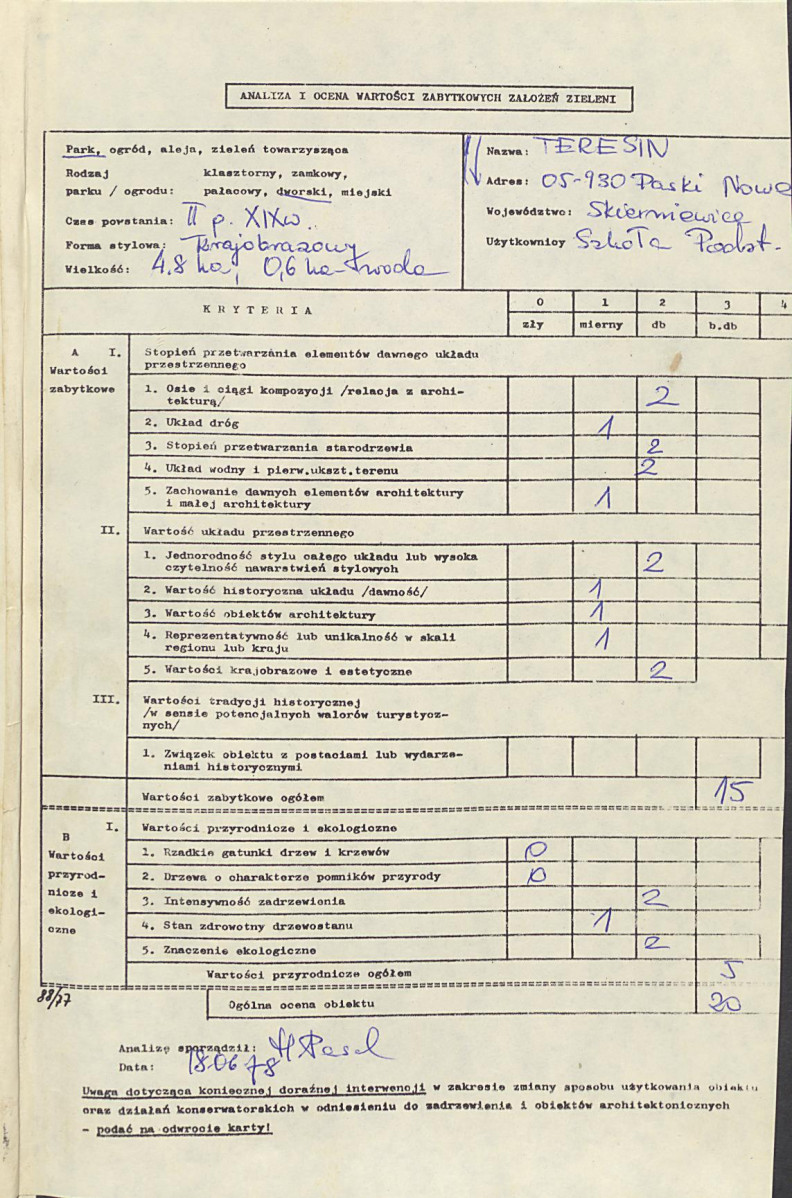 ANALIZA I OCENA WARTOŚCI ZABYTKOWYCH ZAŁOŻEŃ ZIELENI
Park, ogród, aleja, zieleń towarzysząca
Rodzaj klasztorny, zamkowy,
parku / ogrodu: pałacowy, dworski, miejski
Czas powstania: II p. XIXw.
Forma stylowa: Krajobrazowy
Wielkość: 4.8 ha, 0,6 ha - woda
Nazwa: TERESIN
Adres: 05-930 Paski Nowe
Województwo: Skierniewice
Użytkownicy Szkoła Podst.
KRYTERIA 0 1 2 3 4
zły mierny db b.db
A I. Stopień przetwarzania elementów dawnego układu
przestrzennego
Wartości
zabytkowe 1. Osie i ciągi kompozycji /relacja z archi-
tekturą/ 2
2. Układ dróg 1
3. Stopień przetwarzania starodrzewia 2
4. Układ wodny i pierw.ukszt.terenu 2
5. Zachowanie dawnych elementów architektury
i małej architektury 1
II. Wartość układu przestrzennego
1. Jednorodność stylu całego układu lub wysoka
czytelność nawarstwień stylowych 2
2. Wartość historyczna układu /dawność/ 1
3. Wartość obiektów architektury 1
4. Reprezentatywność lub unikalność w skali
regionu lub kraju 1
5. Wartości krajobrazowe i estetyczne 2
III. Wartości tradycji historycznej
/w sensie potencjalnych walorów turystycz-
nych/
1. Związek obiektu z postaciami lub wydarze-
niami historycznymi
Wartości zabytkowe ogółem 15
B I. Wartości przyrodnicze i ekologiczne
Wartości
przyrod-
nicze i
ekologi-
czne
1. Rzadkie gatunki drzew i krzewów 0
2. Drzewa o charakterze pomników przyrody 0
3. Intensywność zadrzewienia 2
4. Stan zdrowotny drzewostanu 1
5. Znaczenie ekologiczne 2
Wartości przyrodnicze ogółem 5
88/77
Ogólna ocena obiektu 20
Analizę sporządził:
Data: 18.06.78
Uwaga dotycząca koniecznej doraźnej interwencji w zakresie zmiany sposobu użytkowania obiektu
oraz działań konserwatorskich w odniesieniu do zadrzewienia i obiektów architektonicznych
- podać na odwrocie karty!